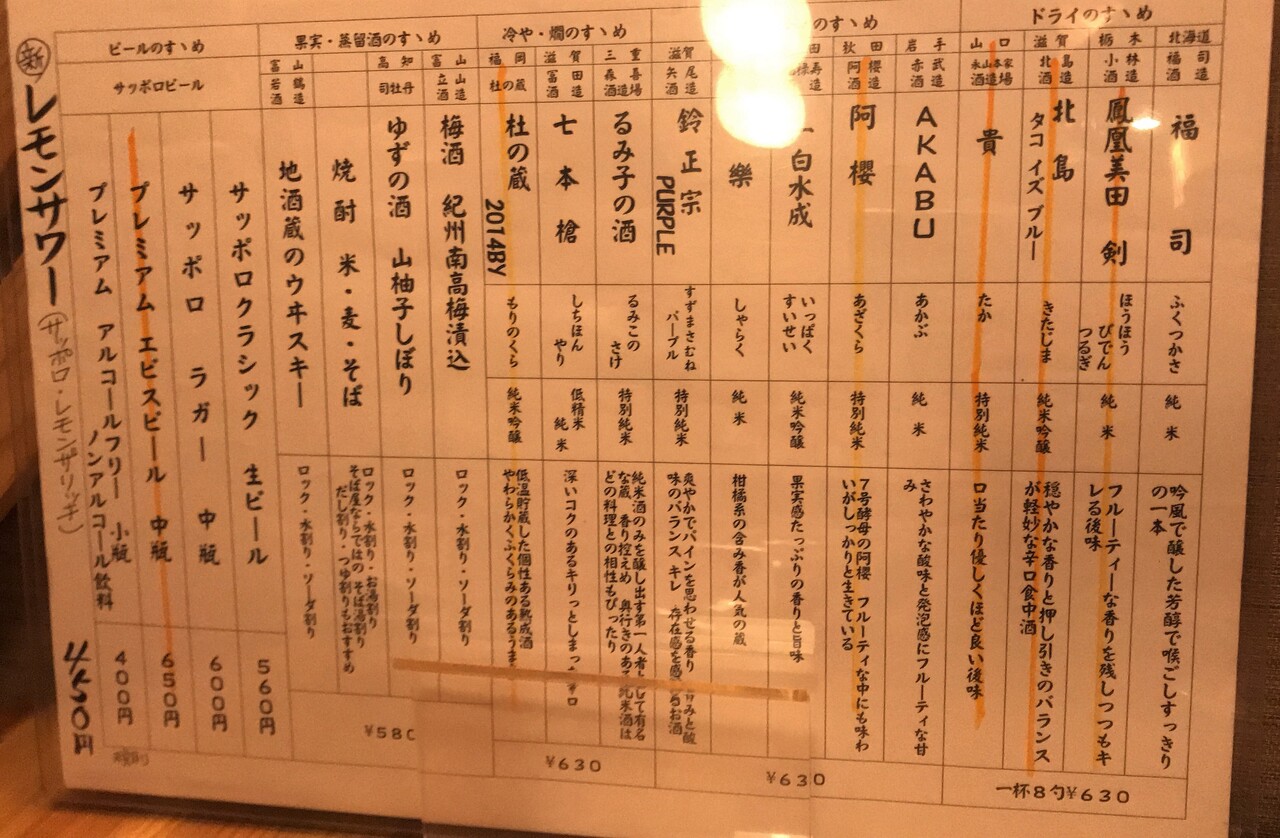 ドライのすゝめ
北海道
福司
酒造
福司
ふくつかさ
純米
吟風で醸した芳醇で喉ごしすっきり
の一本
栃木
小林
酒造
鳳凰美田 剣
ほうほう びでん
つるぎ
純米
フルーティーな香りを残しつつもキ
レる後味
滋賀
北島
酒造
北島
タコ イズ ブルー
きたじま
純米吟醸
穏やかな香りと押し引きのバランス
が軽妙な辛口食中酒
山口
永山本家
酒造場
貴
たか
特別純米
口当たり優しくほど良い後味
一杯8勺¥630
のすゝめ
岩手
赤武
酒造
AKABU
あかぶ
純米
さわやかな酸味と発泡感にフルーティな甘
み
秋田
阿櫻
酒造
阿櫻
あざくら
特別純米
7号酵母の阿櫻 フルーティな中にも味わ
いがしっかりと生きている
田
禄寿
造
一白水成
いっぱく
すいせい
純米吟醸
果実感たっぷりの香りと旨味
樂
しゃらく
純米
柑橘系の含み香が人気の蔵
滋賀
矢尾
酒造
鈴正宗
PURPLE
すずまさむね
パープル
特別純米
爽やかでパインを思わせる香り
味のバランス キレ 存在感を感
¥630
冷や・燗のすゝめ
三重
森喜
酒造場
るみ子の酒
るみこの
さけ
特別純米
純米酒のみを醸し出す第一人者として有名
な蔵 香り控えめ 奥行きのある純米酒は
どの料理との相性もぴったり
滋賀
冨田
酒造
七本槍
しちほん
やり
低精米
純米
深いコクのあるキリっとしまっ
福岡
杜の蔵
杜の蔵
2014BY
もりのくら
純米吟醸
低温貯蔵した個性ある熟成酒
やわらかくふくらみのあるうま
¥630
果実・蒸留酒のすゝめ
富山
立山
酒造
梅酒 紀州南高梅漬込
ロック・水割り・ソーダ割り
高知
司牡丹
ゆずの酒 山柚子しぼり
ロック・水割り・ソーダ割り
焼酎 米・麦・そば
ロック・水割り・お湯割り
そば屋ならではの そば湯割り
だし割り・つゆ割りもおすすめ
富山
若鶴
酒造
地酒蔵のウヰスキー
ロック・水割り・ソーダ割り
¥580
ビールのすゝめ
サッポロビール
サッポロクラシック 生ビール
560円
サッポロ ラガー 中瓶
600円
プレミアム エビスビール 中瓶
650円
プレミアム アルコールフリー 小瓶
ノンアルコール飲料
400円
新 レモンサワー(サッポロ・レモンザリッチ) 450円